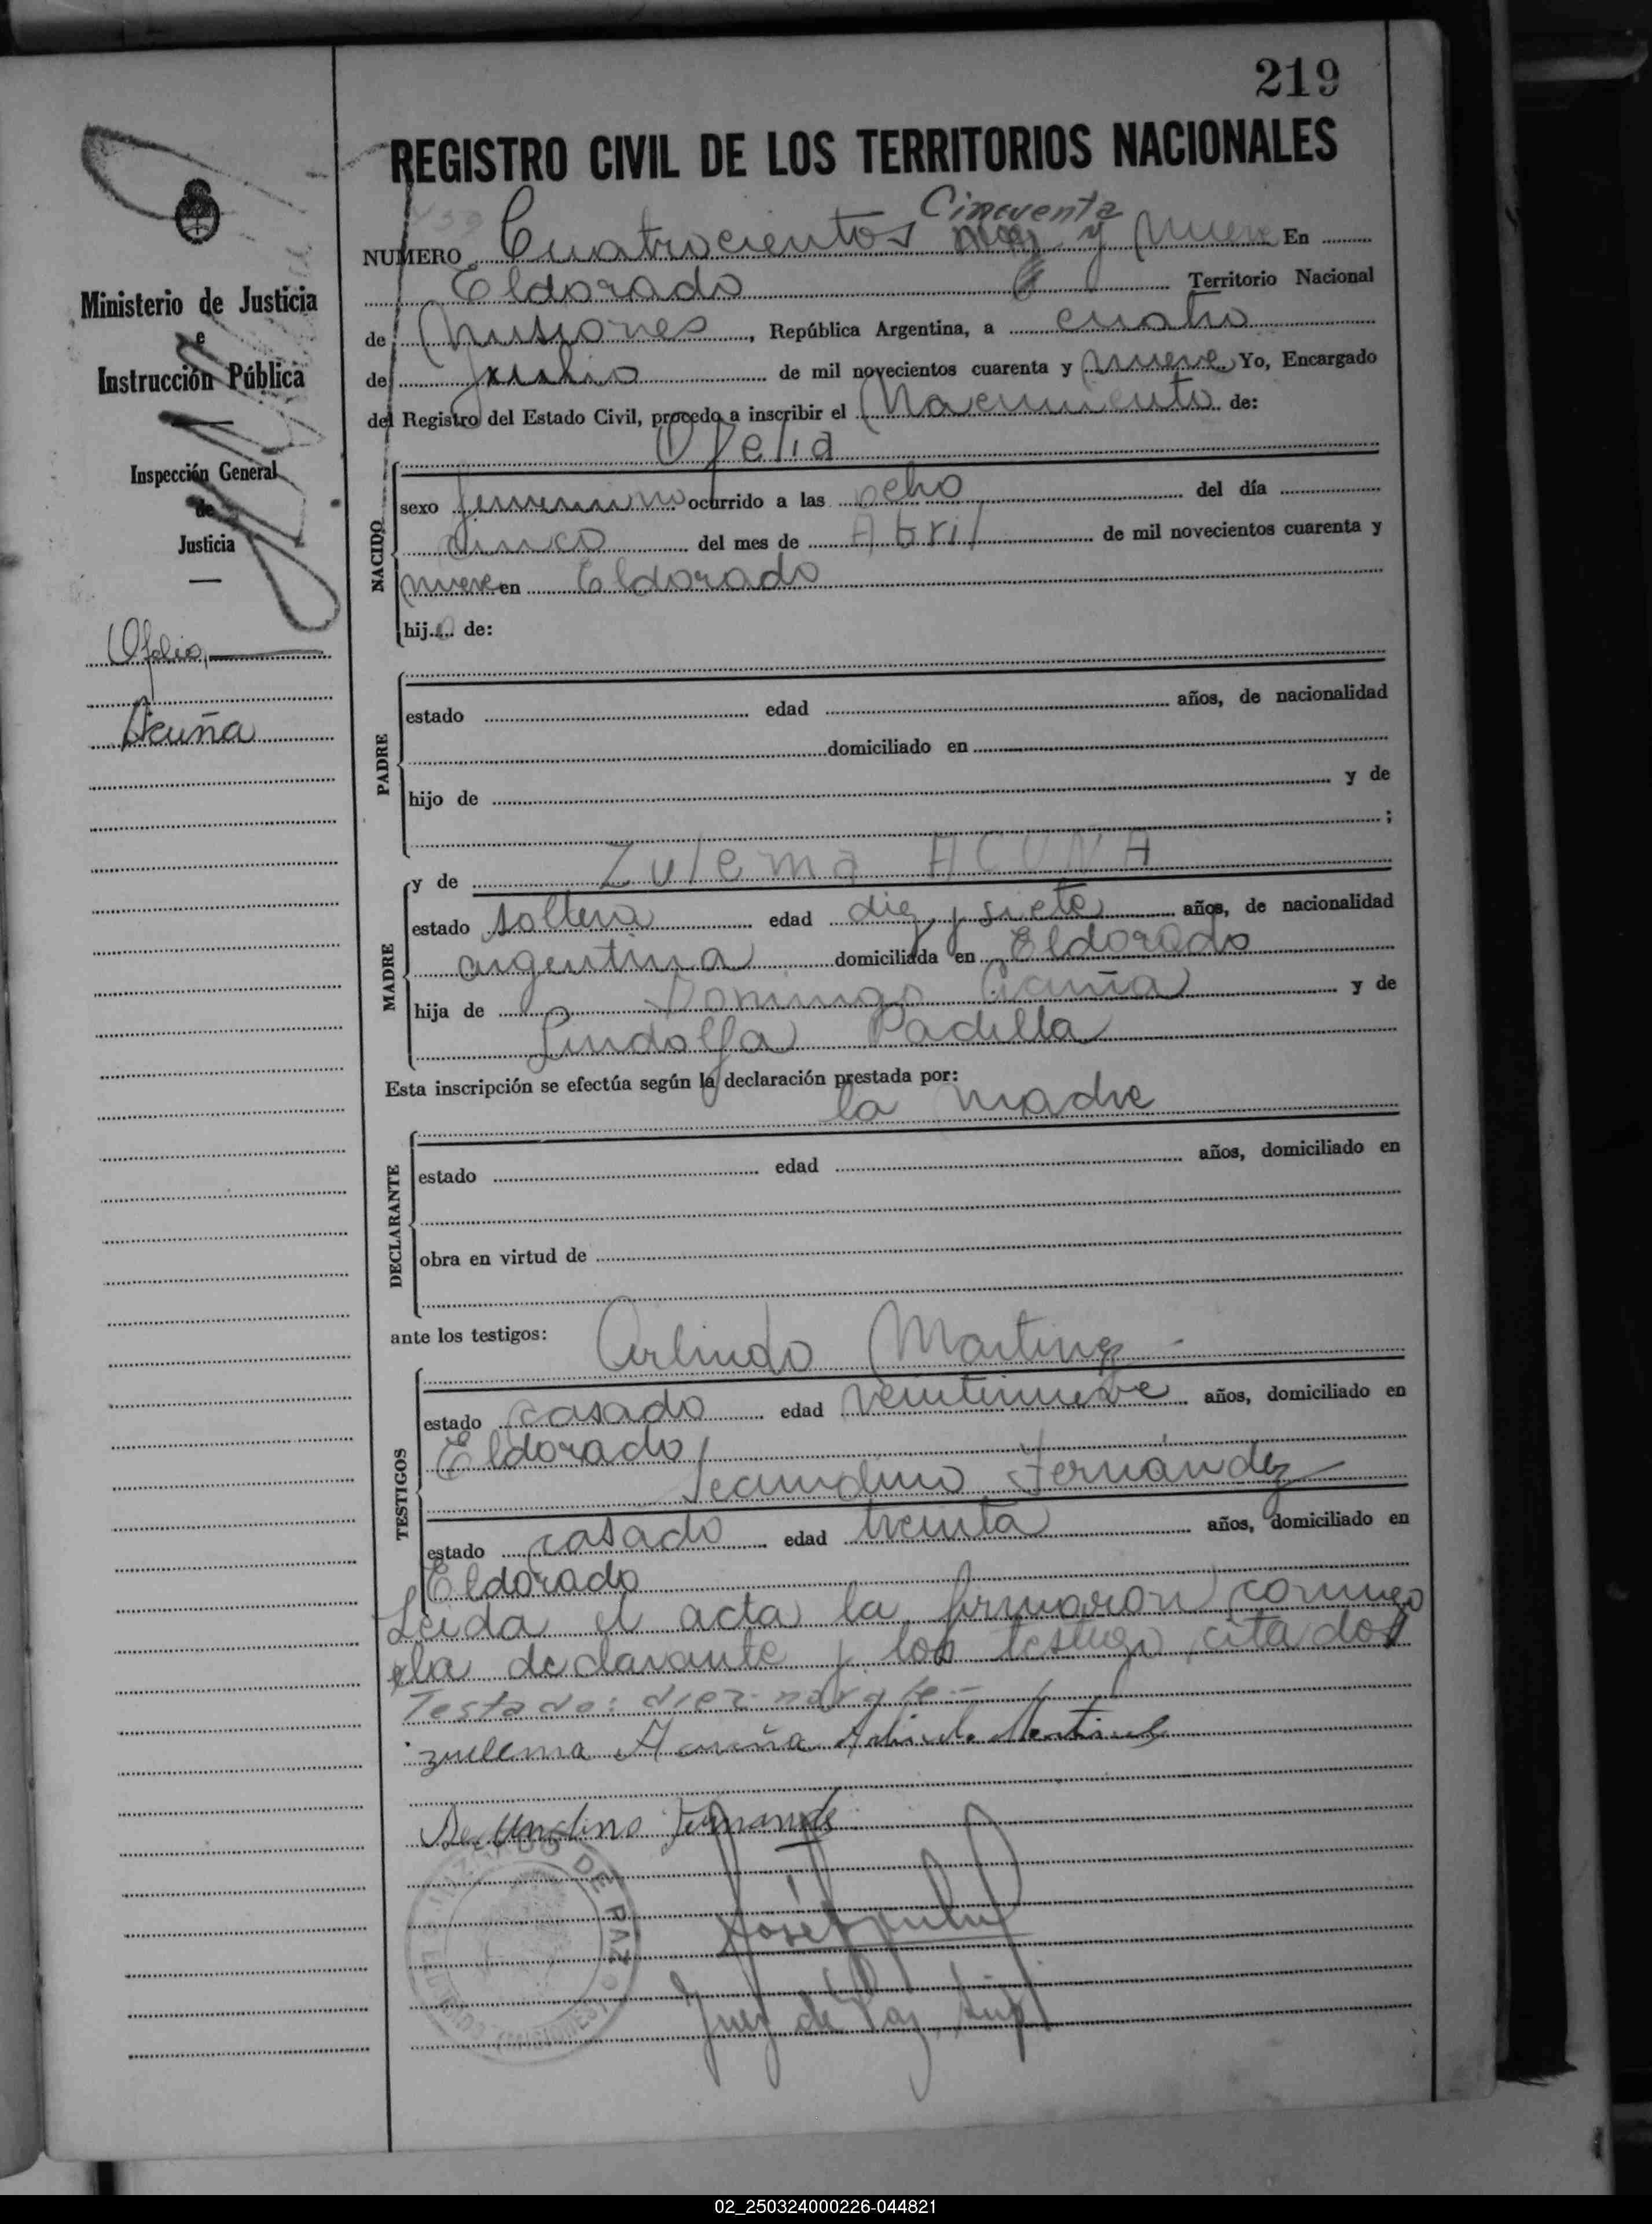 219
REGISTRO CIVIL DE LOS TERRITORIOS NACIONALES
Cincuenta
NUMERO Cuatrocientos y nueve En
Eldorado Territorio Nacional
de Misiones, República Argentina, a cuatro
de Julio de mil novecientos cuarenta y nueve Yo, Encargado
del Registro del Estado Civil, procedo a inscribir el Nacimiento de:
Ofelia
NACIDO
sexo femenino ocurrido a las ocho del día
cinco del mes de Abril de mil novecientos cuarenta y
nueve en Eldorado
hija de:
PADRE
estado edad años, de nacionalidad
domiciliado en
hijo de y de
;
y de Zulema ACUÑA
MADRE
estado soltera edad diez y siete años, de nacionalidad
argentina domiciliada en Eldorado
hija de Domingo Acuña y de
Lindolfa Padilla
Esta inscripción se efectúa según la declaración prestada por:
la madre
DECLARANTE
estado edad años, domiciliado en
obra en virtud de
ante los testigos: Arlindo Martinez
TESTIGOS
estado casado edad veintinueve años, domiciliado en
Eldorado
Secundino Fernández
estado casado edad treinta años, domiciliado en
Eldorado
Leida el acta la firmaron conmigo
la declarante y los testigo citados
Testado: diez- no vale-
zulema Acuña Arlindo Martinez
Secundino Fernandez
José
Juez de Paz Supl
JUZGADO DE PAZ
ELDORADO (MISIONES)
Ministerio de Justicia
e
Instrucción Pública
Inspección General
de
Justicia
Ofelia
Acuña
02_250324000226-044821